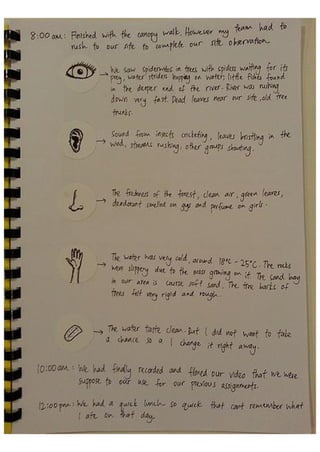 8:00am: Finished with the canopy walk. However my team had to
rush to our site to complete our site observation.
→ We saw spiderwebs in trees with spiders waiting for its
prey, water striders hopping on water; little fishes found
in the deeper end of the river. River was rushing
down very fast. Dead leaves near our site, old tree
trunks.
→ Sound from insects cricketing, leaves bristling in the
wind, streams rushing, other groups shouting.
→ The freshness of the forest, clean air, green leaves,
deodorant smelled on guys and perfume on girls.
→ The water was very cold, around 18°C - 25°C. The rocks
were slippery due to the moss growing on it. The sand bay
in our area is coarse soft sand. The tree barks of
trees felt very rigid and rough.
→ The water taste clean. But I did not want to take
a chance so a I change it right away.
10:00am: We had finally recorded and filmed our video that we were
suppose to our use for our previous assignments.
12:00pm: We had a quick lunch so quick that cant remember what
I ate on that day.